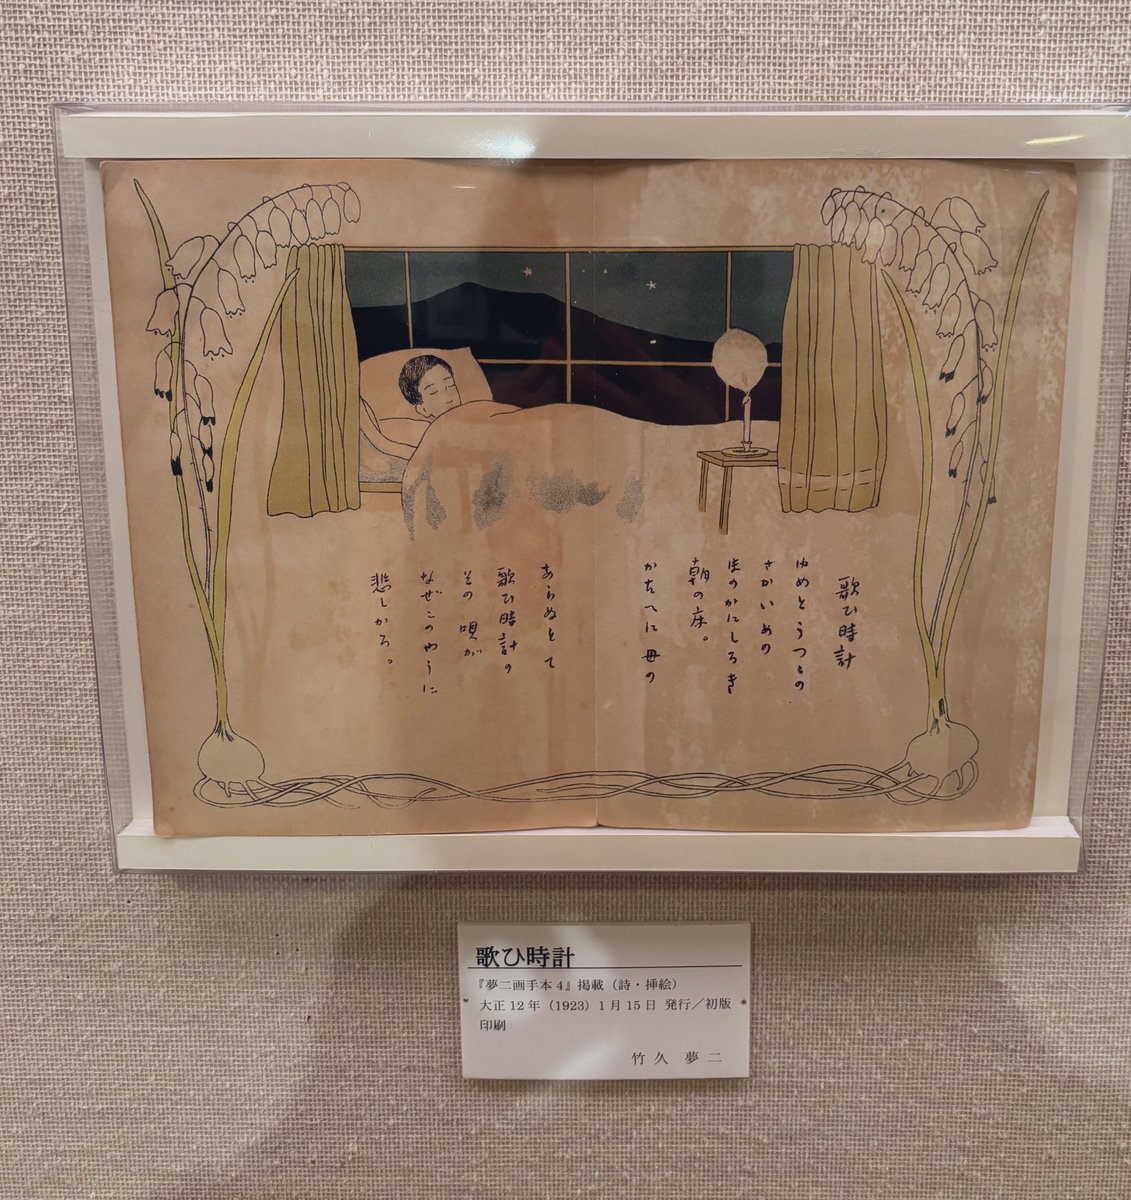 歌ひ時計
ゆめとうつゝの
さかいめの
ほのかにしろき
朝の床。
かたへに母の
あらぬとて
歌ひ時計の
その唄が
なぜこのやうに
悲しかろ。
歌ひ時計
『夢二画手本 4』掲載（詩・挿絵）
大正 12 年（1923）1 月 15 日 発行／初版
印刷
竹久 夢二